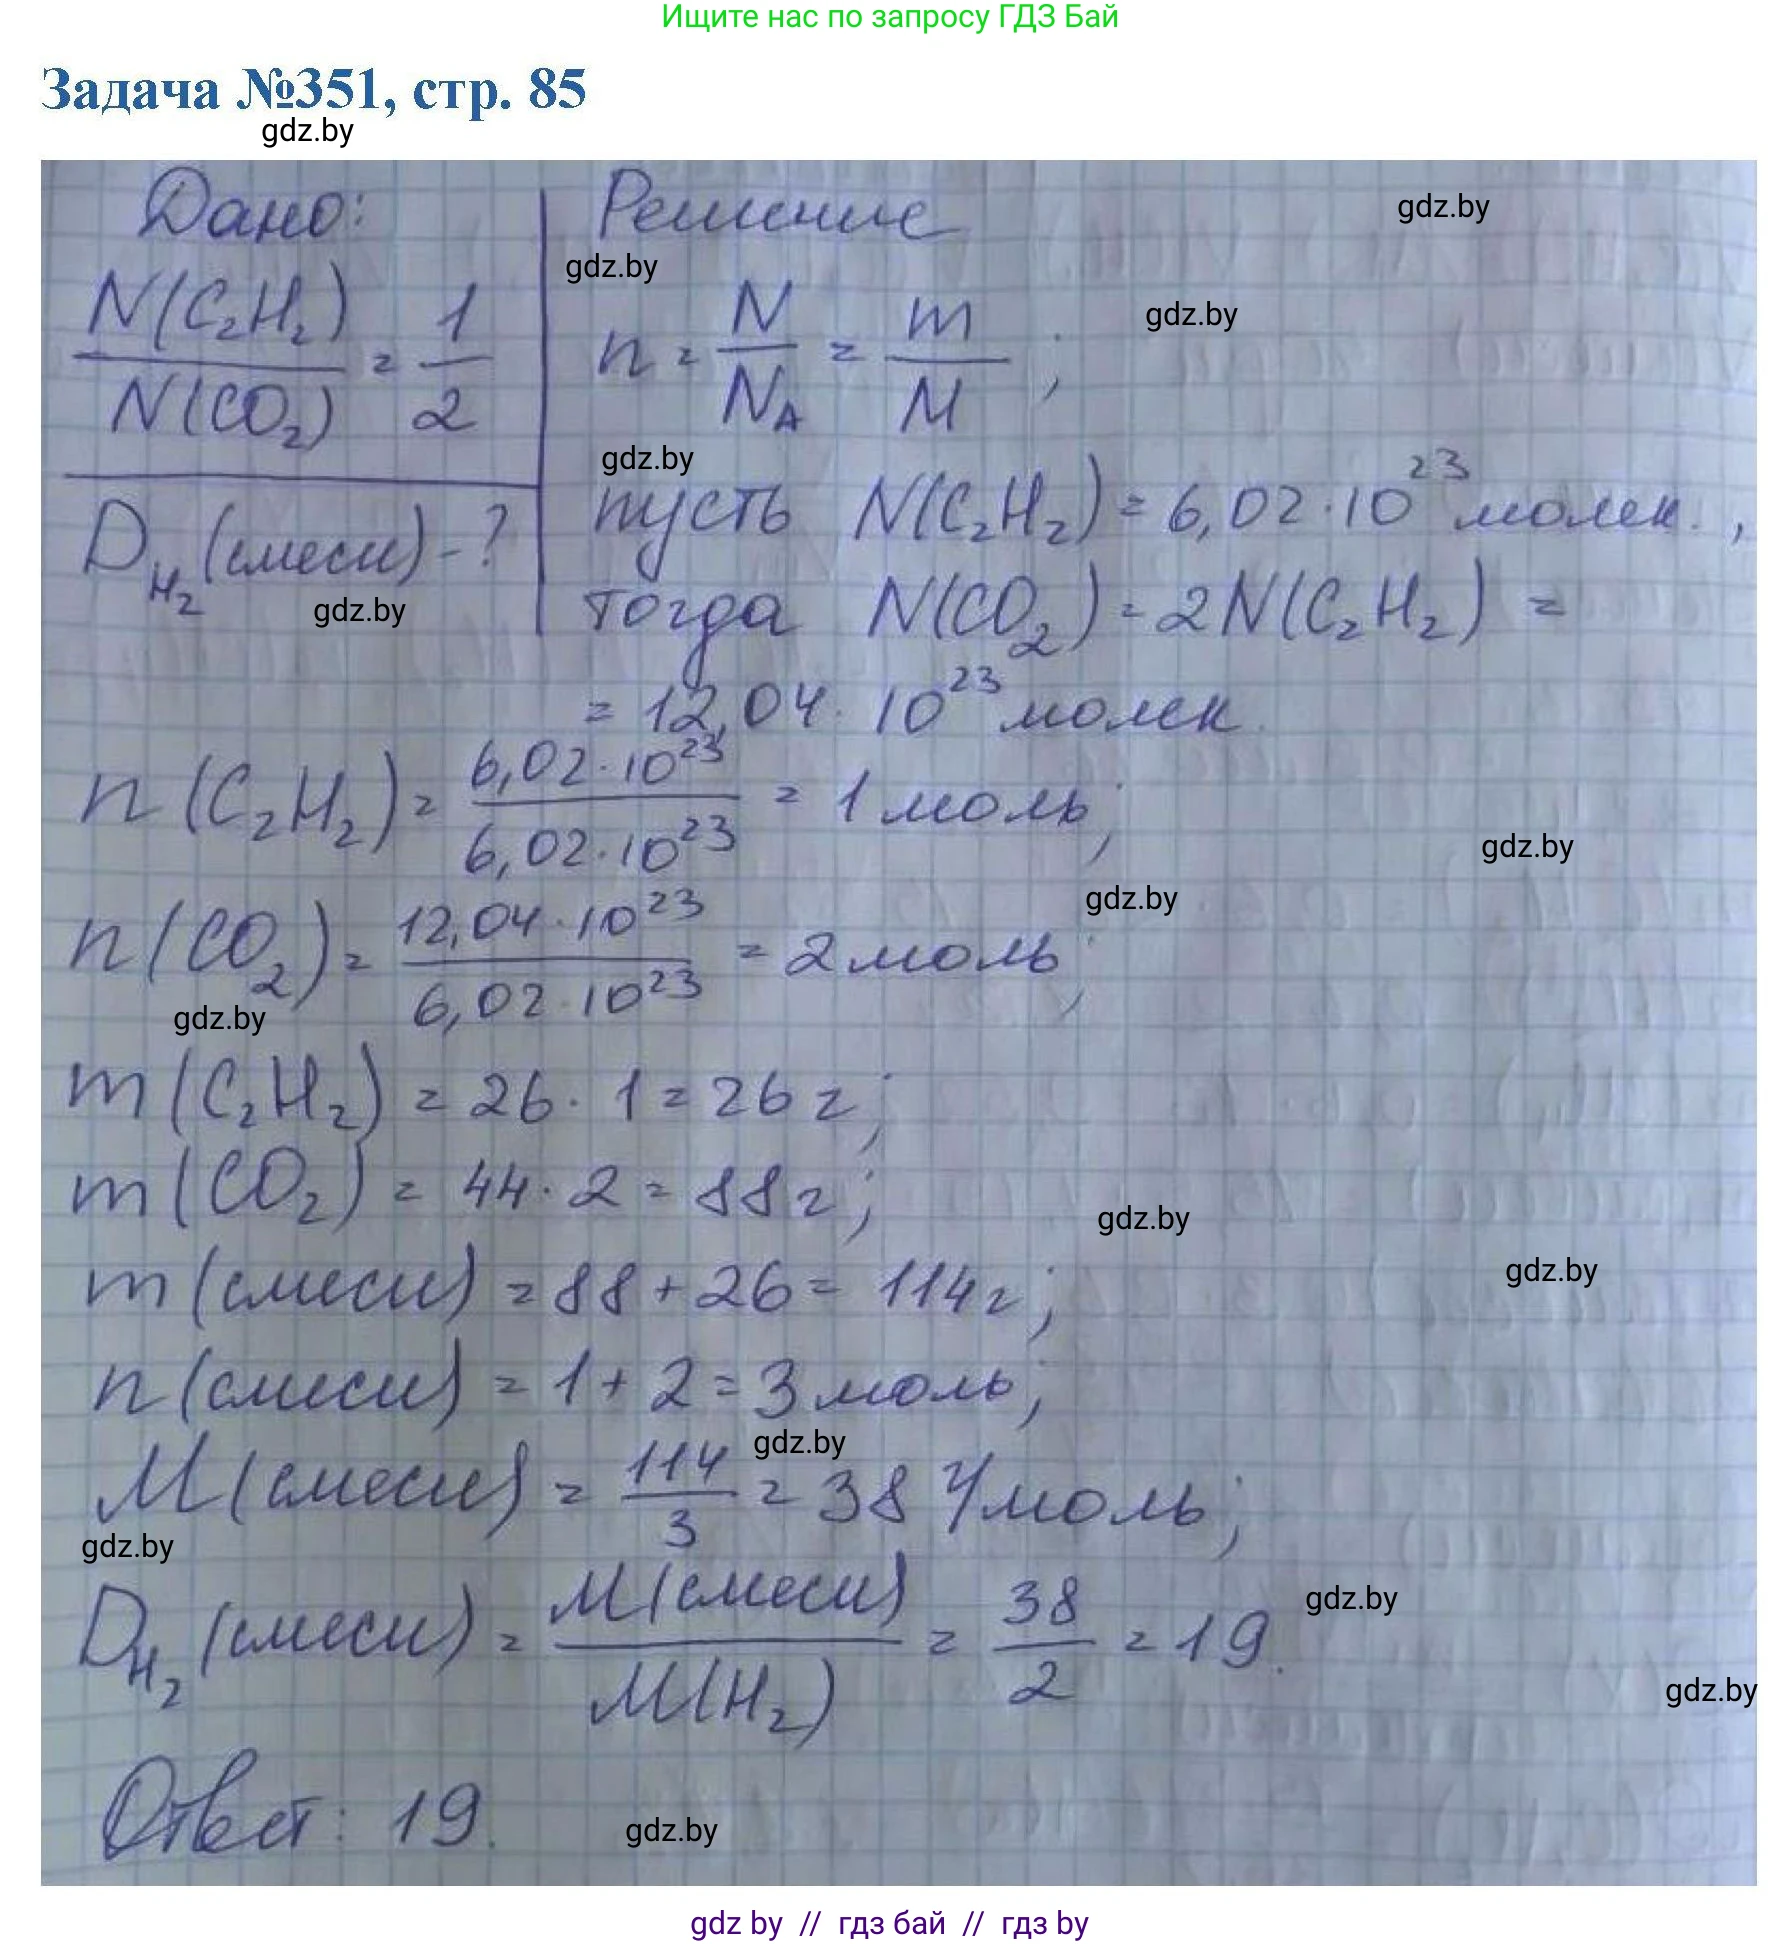 Ищите нас по запросу ГДЗ Бай
Задача №351, стр. 85
gdz.by
Дано:
N(C₂H₂)/N(CO₂) = 1/2
D_H₂(смеси) - ?
gdz.by
Решение
gdz.by
gdz.by
n = N/N_A = m/M ;
gdz.by
gdz.by
пусть N(C₂H₂) = 6,02·10²³ молек.,
тогда N(CO₂) = 2N(C₂H₂) =
= 12,04·10²³ молек.
n(C₂H₂) = 6,02·10²³/6,02·10²³ = 1 моль;
gdz.by
gdz.by
n(CO₂) = 12,04·10²³/6,02·10²³ = 2 моль;
gdz.by
m(C₂H₂) = 26·1 = 26 г;
m(CO₂) = 44·2 = 88 г;
gdz.by
gdz.by
m(смеси) = 88 + 26 = 114 г;
n(смеси) = 1 + 2 = 3 моль;
gdz.by
M(смеси) = 114/3 = 38 г/моль;
gdz.by
D_H₂(смеси) = M(смеси)/M(H₂) = 38/2 = 19.
gdz.by
gdz.by
Ответ: 19.
gdz.by
gdz by // гдз бай // гдз by